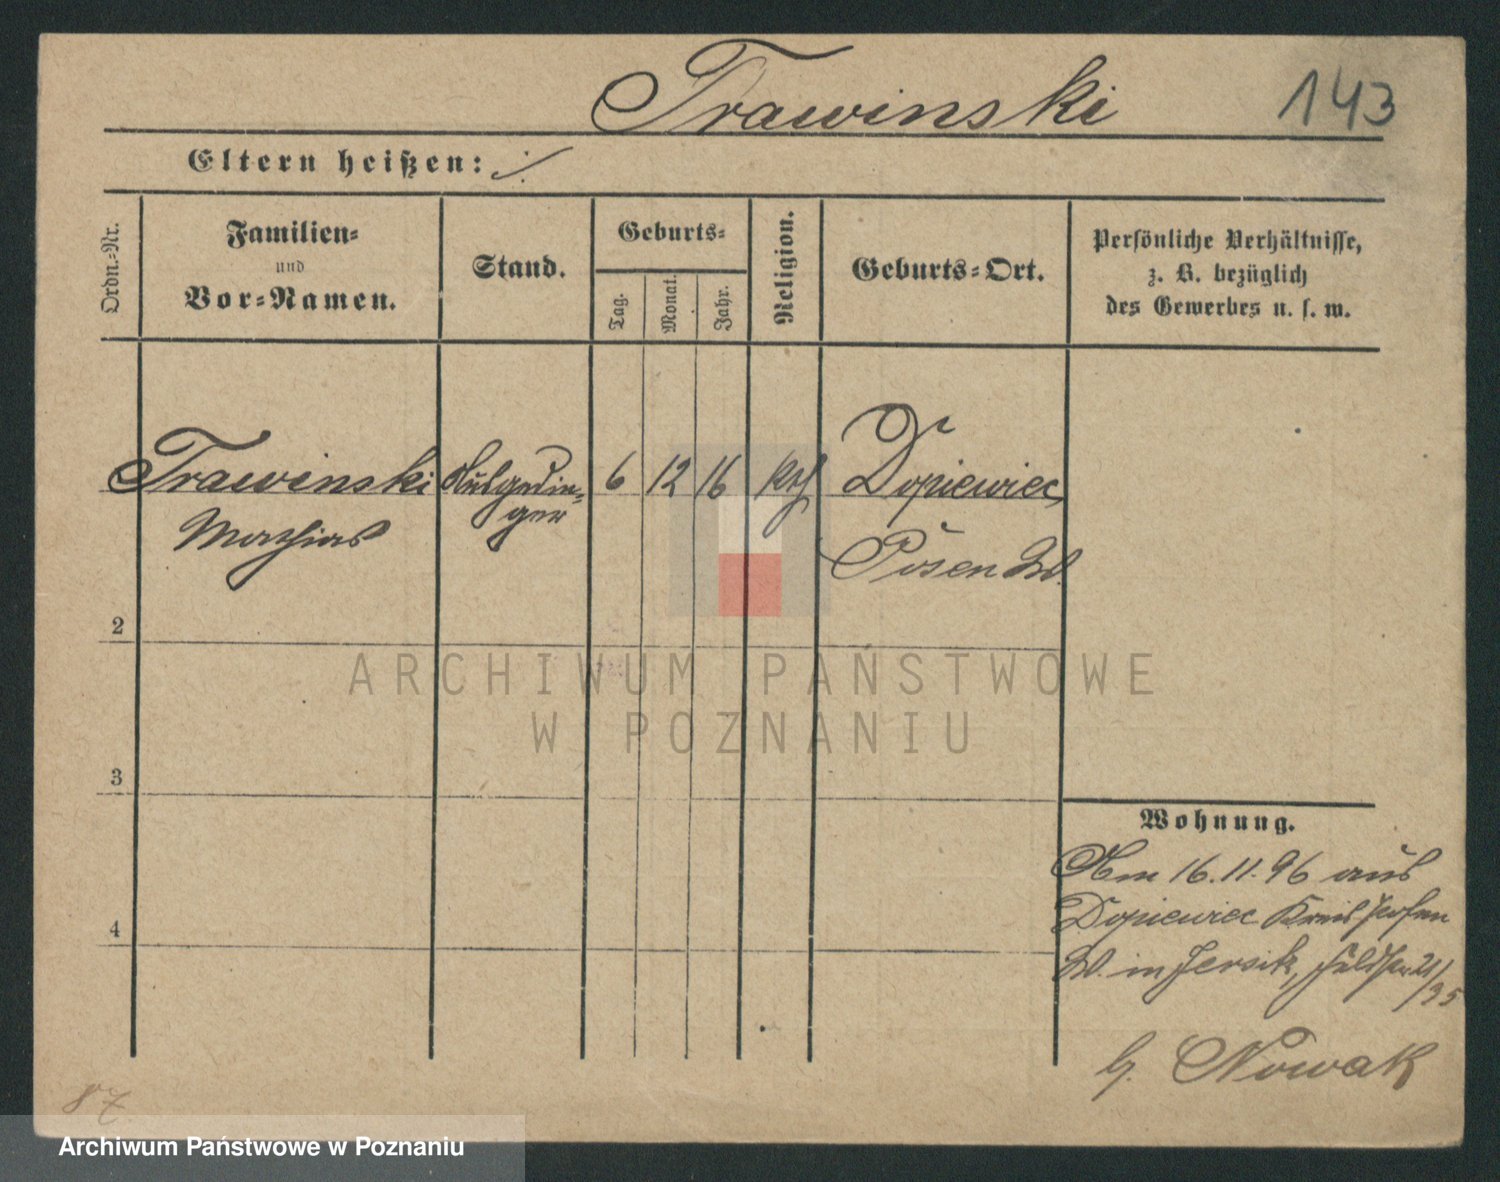 Trawinski
143
Eltern heißen: ·/·
Ordn.-Nr.
Familien-
und
Vor-Namen.
Stand.
Geburts-
Tag.
Monat.
Jahr.
Religion.
Geburts-Ort.
Persönliche Verhältnisse,
z. B. bezüglich
des Gewerbes u. s. w.
Trawinski
Mathias
Ausgedin-
ger
6
12
16
kth
Dopiewiec,
Posen W.
2
3
4
Wohnung.
Am 16.11.96 aus
Dopiewiec Kreis Posen
W. in Jersitz, 21/
95
b. Nowak
87
ARCHIWUM PAŃSTWOWE
W POZNANIU
Archiwum Państwowe w Poznaniu